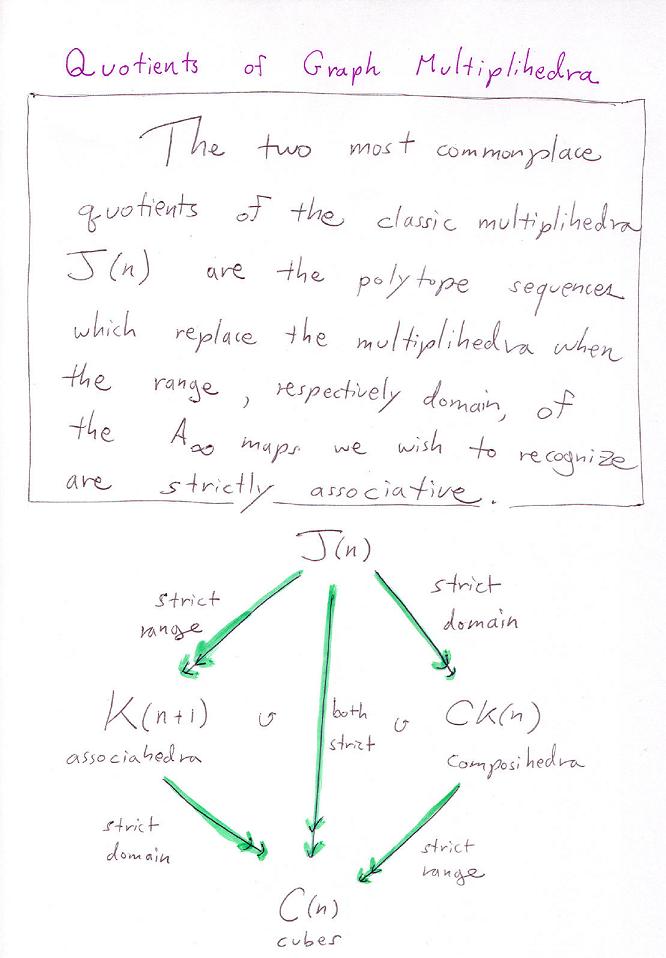 Quotients of Graph Multiplihedra
The two most commonplace
quotients of the classic multiplihedra
J(n) are the polytope sequences
which replace the multiplihedra when
the range, respectively domain, of
the A∞ maps we wish to recognize
are strictly associative.
J(n)
strict
range
strict
domain
K(n+1)
associahedra
both
strict
CK(n)
composihedra
strict
domain
strict
range
C(n)
cubes